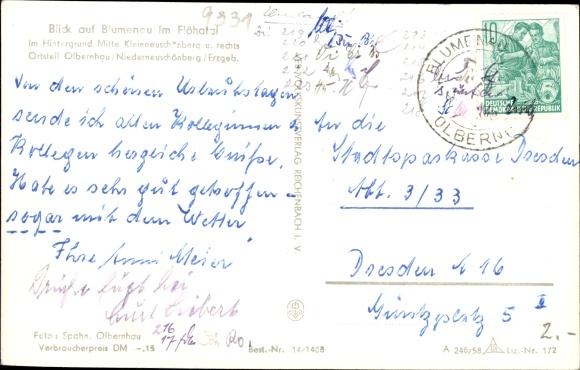 Blick auf Blumenau im Flöhatal
Im Hintergrund Mitte Kleineuschönberg u. rechts
Ortsteil Olbernhau / Niederneuschönberg / Erzgeb.
9331
Von den schönen Urlaubstagen
sende ich allen Kolleginnen u.
Kollegen herzliche Grüße.
Habe es sehr gut getroffen –
sogar mit dem Wetter
Ihre Anni Meier
Grüße fügt bei
Kurt
216
Foto: Spahn, Olbernhau
Verbraucherpreis DM -,15
Best.-Nr. 14/1408
REICHENBACH I. V.
10
DEUTSCHE
DEMOKRATISCHE REPUBLIK
BLUMENAU
OLBERNH
An die
Stadtsparkasse Dresden
Abt. 3/33
Dresden A 16
Güntzplatz 5 II
2.-
A 246/58 Liz.-Nr. 172